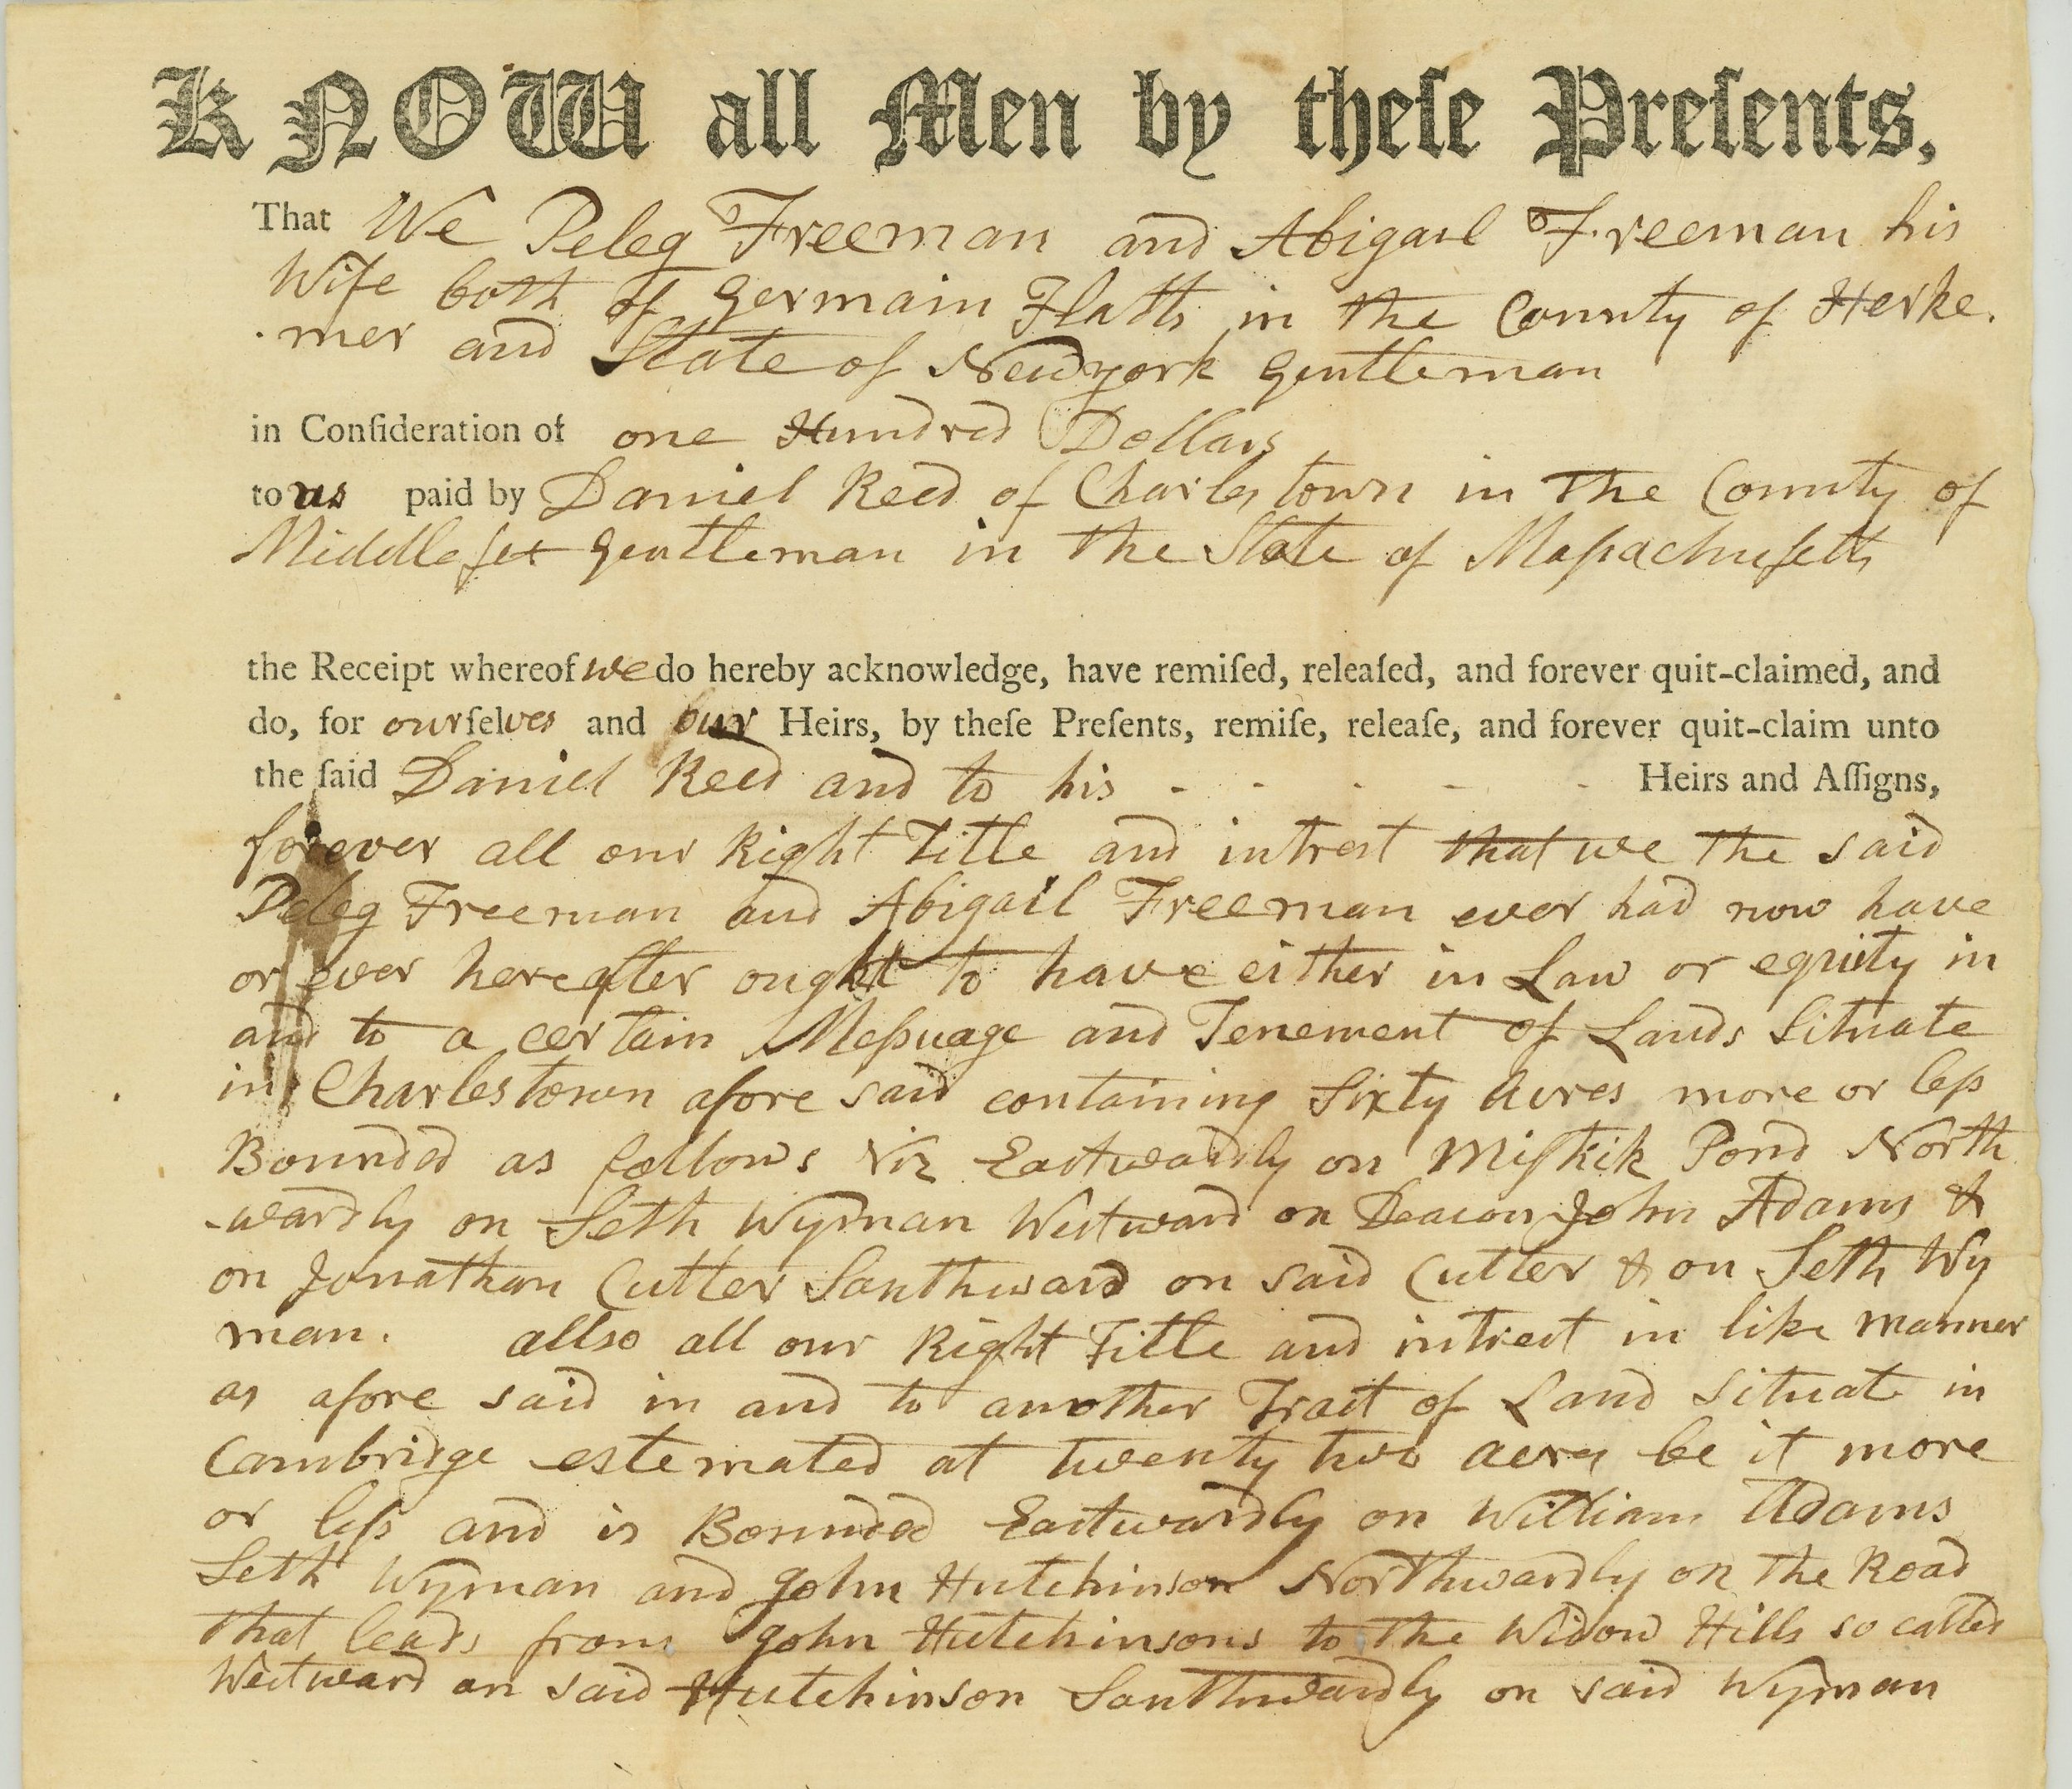 KNOW all Men by theſe Preſents,
That We Peleg Freeman and Abigail Freeman his
Wife both of Germain Flatts in the County of Herke.
.mer and State of Newyork Gentleman
in Conſideration of one Hundred Dollars
to us paid by Daniel Reed of Charlestown in The County of
Middleſex Gentleman in the State of Maſsachuſetts
the Receipt whereof we do hereby acknowledge, have remiſed, releaſed, and forever quit-claimed, and
do, for ourſelves and our Heirs, by theſe Preſents, remiſe, releaſe, and forever quit-claim unto
the ſaid Daniel Reed and to his - - - - - Heirs and Aſſigns,
forever all our Right Title and intrest that we the said
Peleg Freeman and Abigail Freeman ever had now have
or ever hereafter ought to have either in Law or equity in
and to a certain Meſsuage and Tenement of Lands Situate
in Charlestown afore said containing Sixty Acres more or leſs
Bounded as follows Viz Eastwardly on Miſtkik Pond North
-wardly on Seth Wyman Westward on Deacon John Adams &
on Jonathan Cutter Southward on said Cutter & on Seth Wy
man. allso all our Right Title and intrest in like manner
as afore said in and to another Tract of Land Situate in
Cambridge estemated at twenty two acres be it more
or leſs and is Bounded Eastwardly on William Adams
Seth Wyman and John Hutchinson Northwardly on the Road
that leads from John Hutchinsons to the Widow Hills so called
Westward on said Hutchinson Southwardly on said Wyman